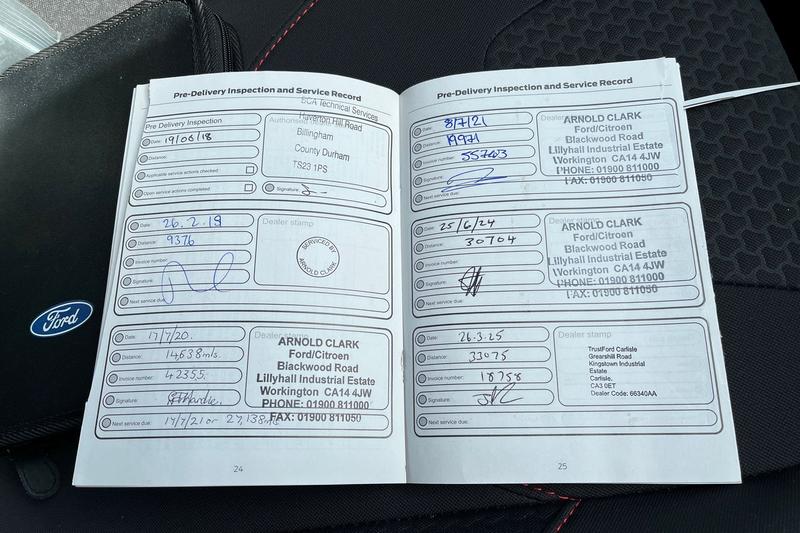 Pre-Delivery Inspection and Service Record
Pre Delivery Inspection
Date: 19/06/18
Distance:
Applicable service actions checked
Open service actions completed
BCA Technical Services
Haverton Hill Road
Billingham
County Durham
TS23 1PS
Signature:
Date: 26.2.19
Distance: 9376
Invoice number:
Signature:
Next service due:
Dealer stamp
SERVICED BY
ARNOLD CLARK
Date: 17/7/20.
Distance: 14,638 mls.
Invoice number: 42355.
Signature:
Next service due: 17/7/21 or 27,138 mls
Dealer stamp
ARNOLD CLARK
Ford/Citroen
Blackwood Road
Lillyhall Industrial Estate
Workington CA14 4JW
PHONE: 01900 811000
FAX: 01900 811050
24
Ford
Pre-Delivery Inspection and Service Record
Date: 8/7/21
Distance: 19971
Invoice number: 55743
Signature:
Next service due:
ARNOLD CLARK
Ford/Citroen
Blackwood Road
Lillyhall Industrial Estate
Workington CA14 4JW
PHONE: 01900 811000
FAX: 01900 811050
Date: 25/6/24
Distance: 30704
Invoice number:
Signature:
Next service due:
Dealer stamp
ARNOLD CLARK
Ford/Citroen
Blackwood Road
Lillyhall Industrial Estate
Workington CA14 4JW
PHONE: 01900 811000
FAX: 01900 811050
Date: 26.3.25
Distance: 33075
Invoice number: 18758
Signature:
Next service due:
Dealer stamp
TrustFord Carlisle
Grearshill Road
Kingstown Industrial
Estate
Carlisle.
CA3 0ET
Dealer Code: 66340AA
25